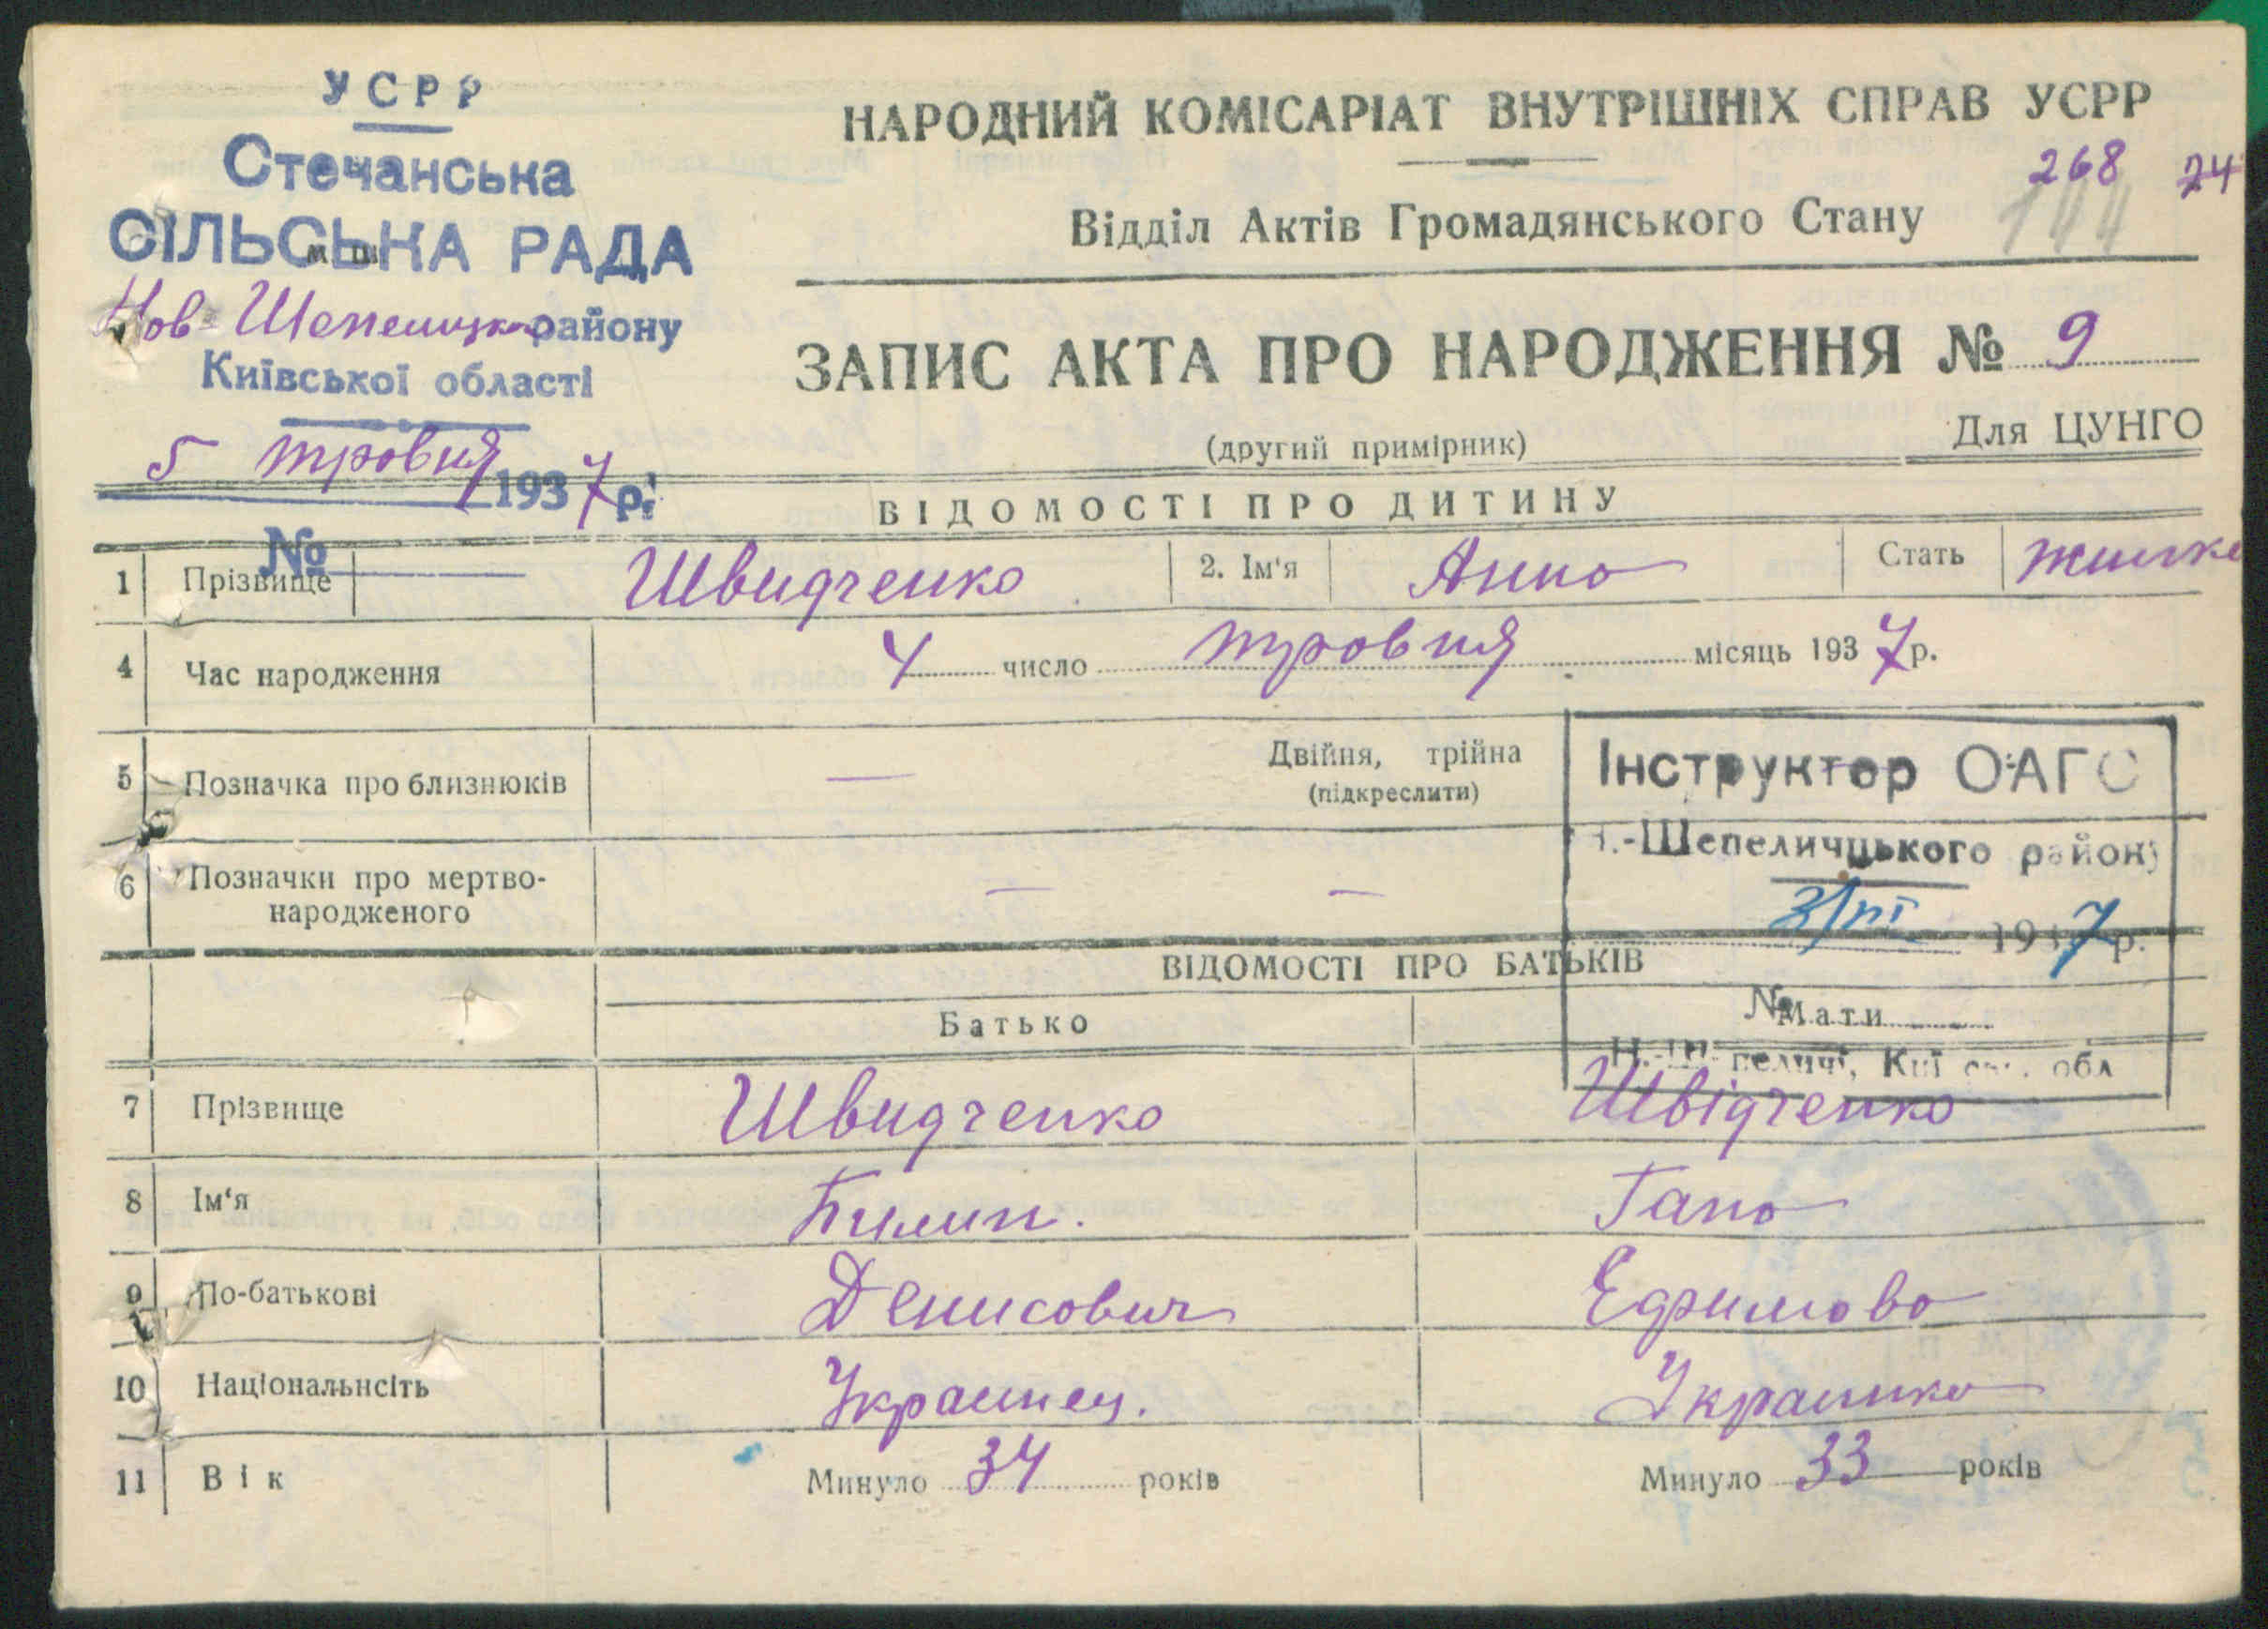 УСРР
Стечанська
СІЛЬСЬКА РАДА
Нов-Шепелицьк району
Київської області
5 тровня 1937 р.
№
НАРОДНИЙ КОМІСАРІАТ ВНУТРІШНІХ СПРАВ УСРР
268 24
144
Відділ Актів Громадянського Стану
ЗАПИС АКТА ПРО НАРОДЖЕННЯ № 9
(другий примірник)
Для ЦУНГО
ВІДОМОСТІ ПРО ДИТИНУ
1 Прізвище Швидченко 2. Ім'я Анна Стать
4 Час народження 4 число тровня місяць 1937 р.
5 Позначка про близнюків — Двійня, трійна
(підкреслити)
Інструктор ОАГС
Н.-Шепеличцького району
6 Позначки про мертво-
народженого — —
3/VI 1937 р.
ВІДОМОСТІ ПРО БАТЬКІВ
№
Батько Мати
7 Прізвище Швидченко Швідченко
8 Ім'я Гапа
9 По-батькові Денисович Ефимова
10 Національнсіть Украинец. Украинка
11 Вік Минуло 34 років Минуло 33 років